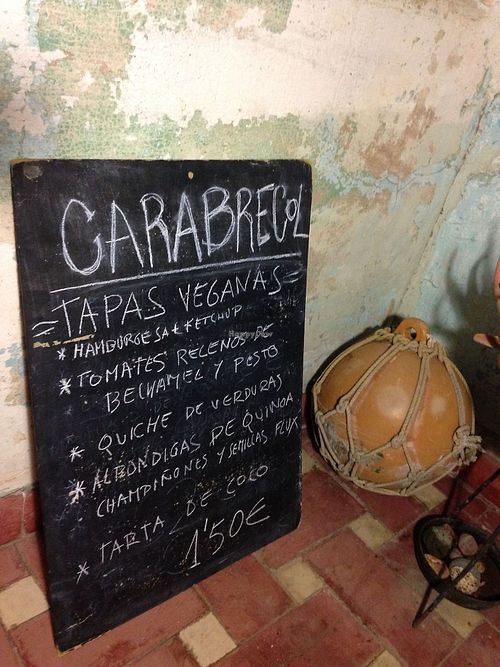 CARABRECOL
=TAPAS VEGANAS=
* HAMBURGESA + KETCHUP
* TOMATES RELENOS DE
BECHAMEL Y PESTO
* QUICHE DE VERDURAS
* ALBONDIGAS DE QUINOA
CHAMPIÑONES Y SEMILLAS FLUX
* TARTA DE COCO
1'50€